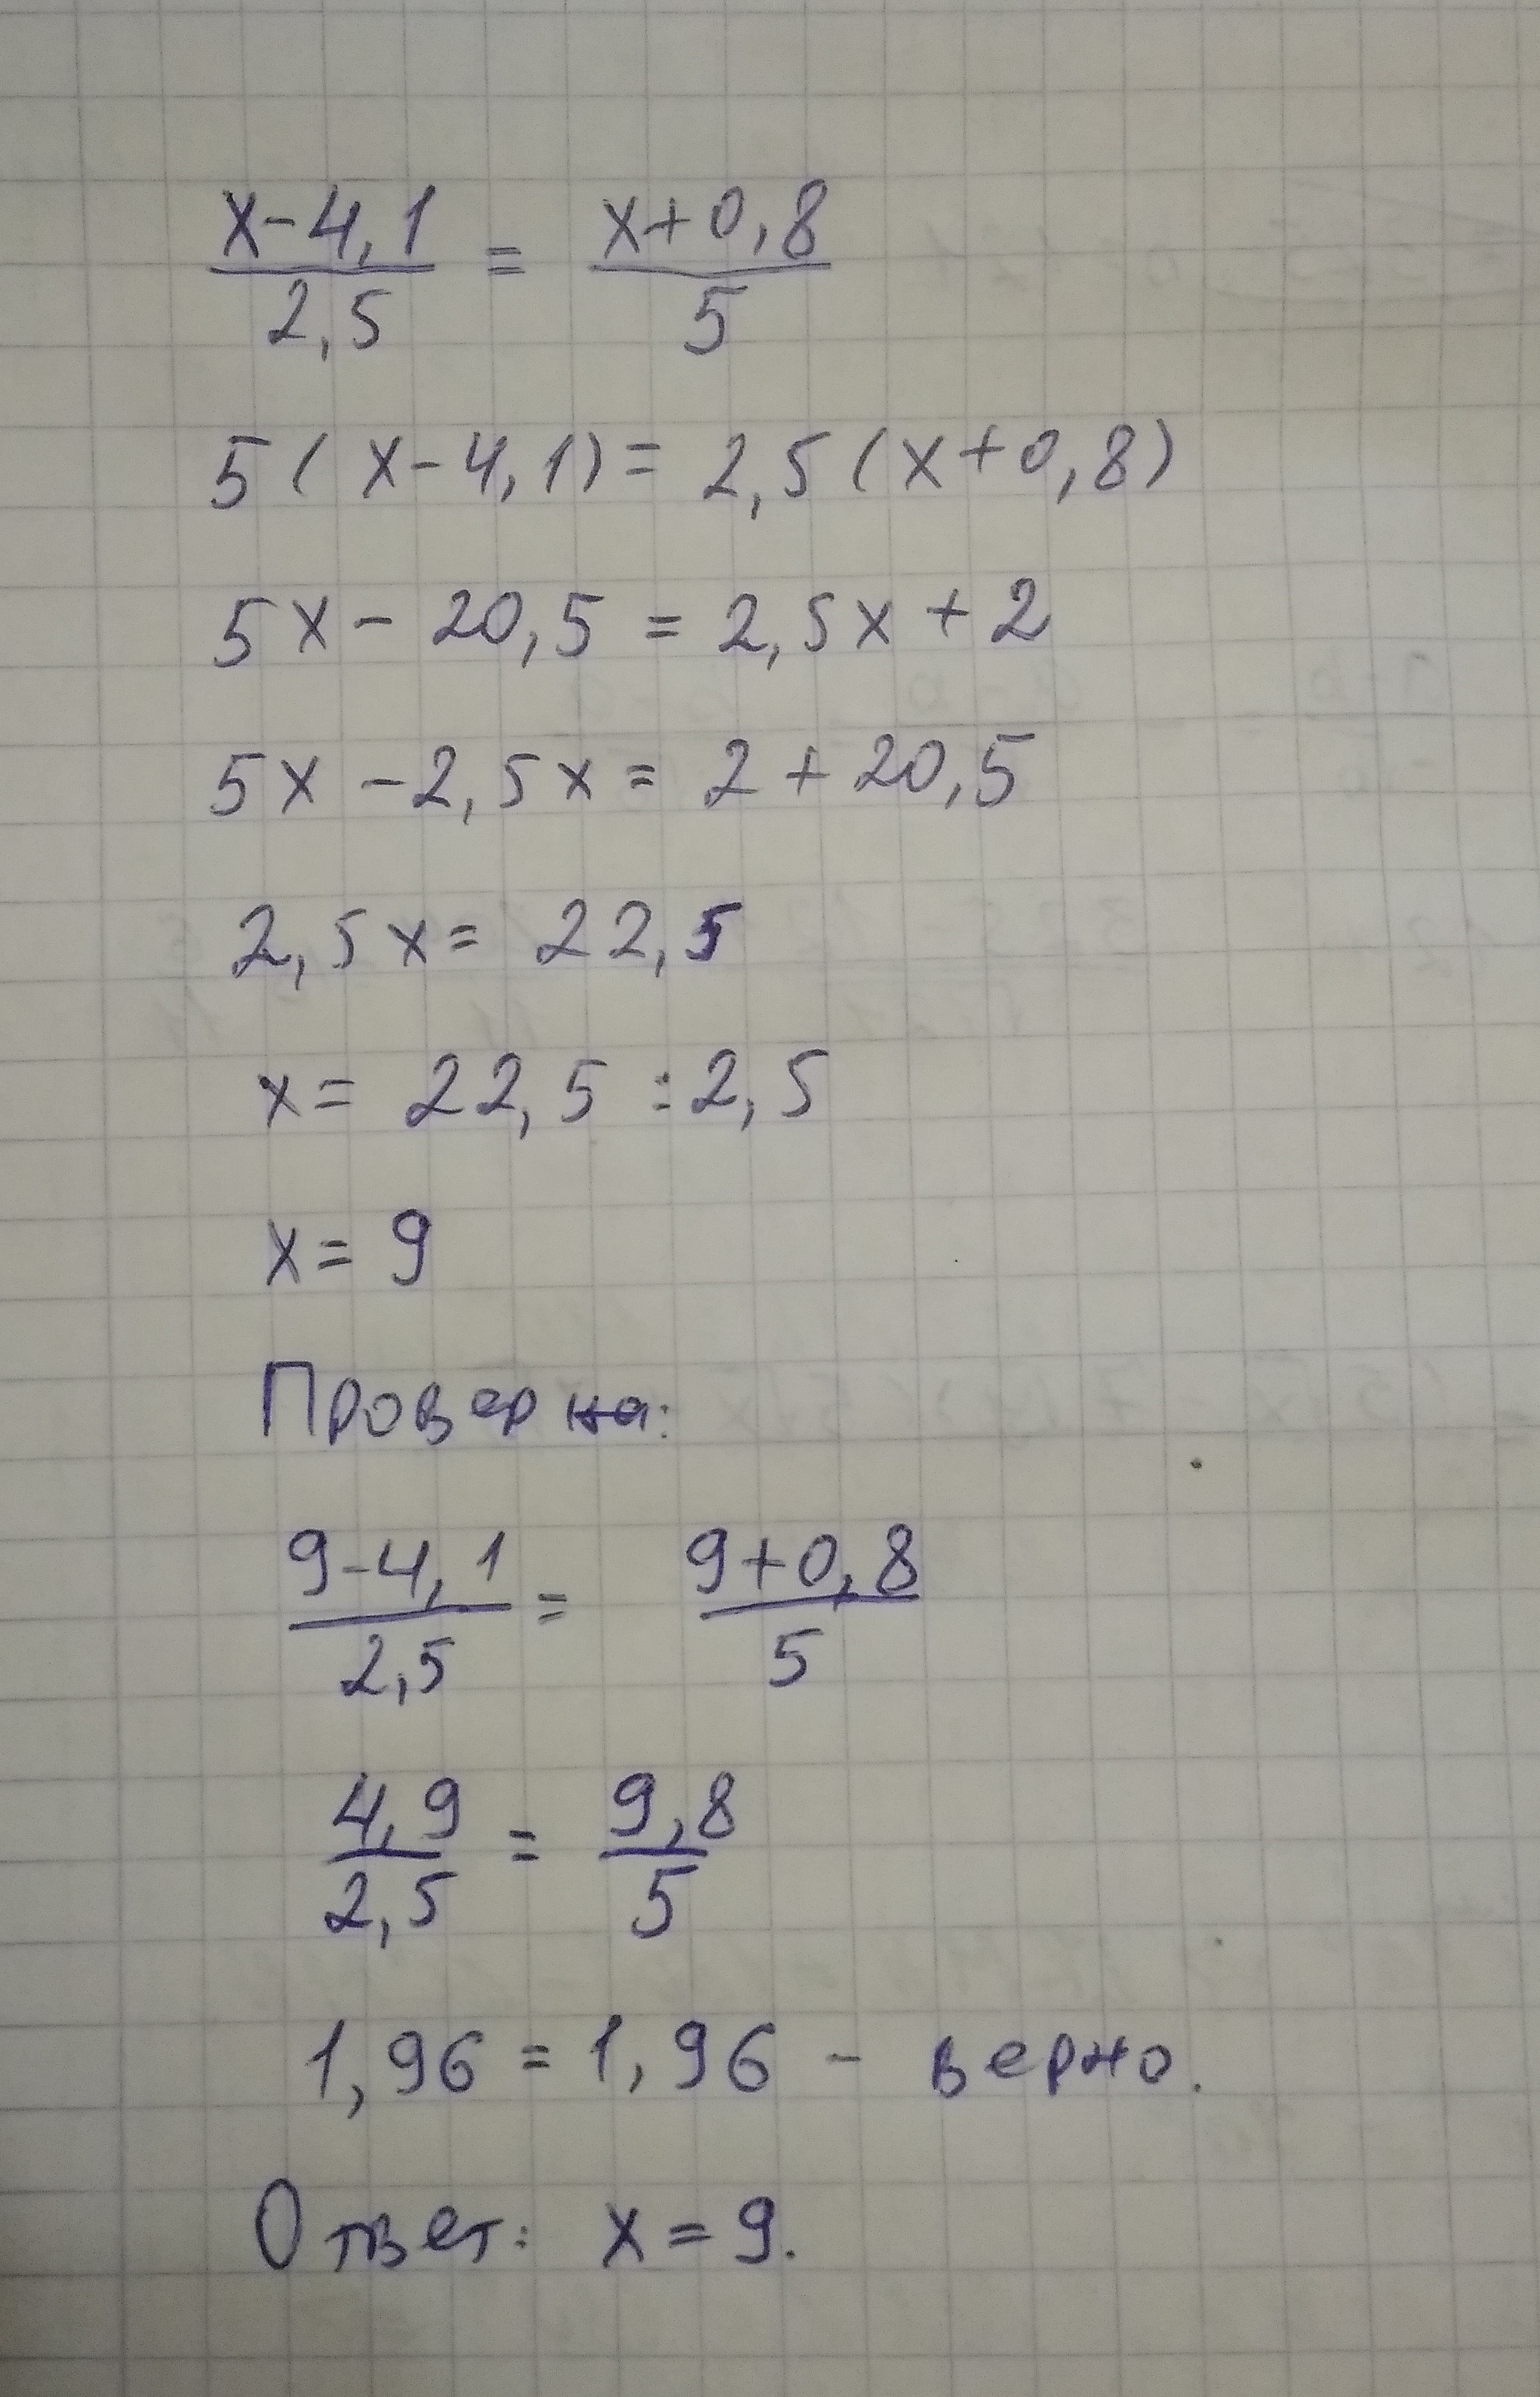 x-4,1/2,5 = x+0,8/5
5(x-4,1)=2,5(x+0,8)
5x-20,5=2,5x+2
5x-2,5x=2+20,5
2,5x=22,5
x=22,5:2,5
x=9
Проверка:
9-4,1/2,5 = 9+0,8/5
4,9/2,5 = 9,8/5
1,96=1,96 - верно.
Ответ: x=9.